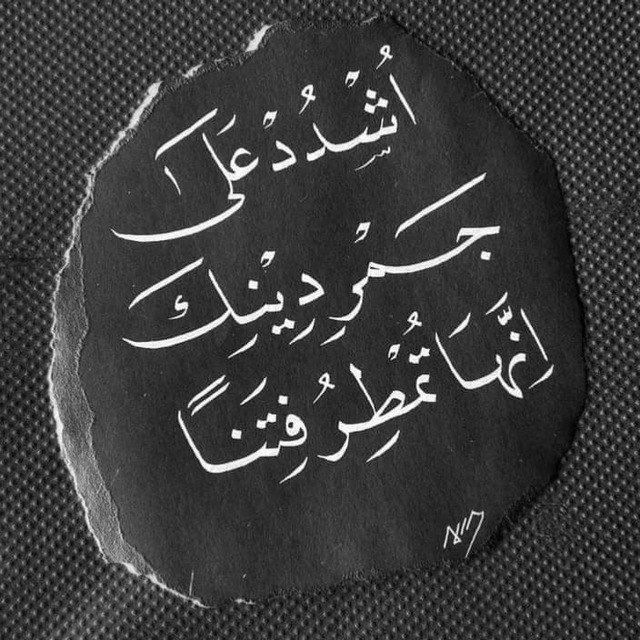 اُشْدُدْ عَلَى
جَمْرِ دِيْنِكَ
اِنَّهَا تُمْطِرُ فِتَنًا